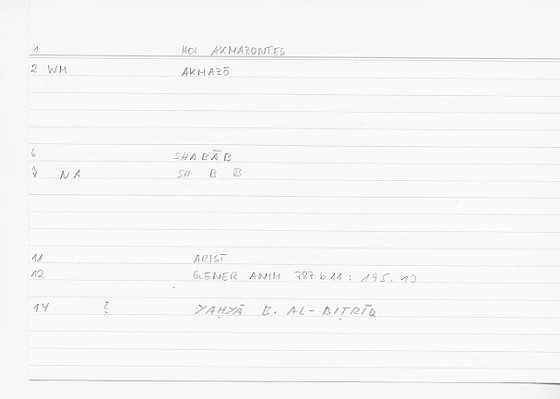 1 HOI AKMAZONTES
2 WM AKMAZŌ
6 SHABĀB
NA SH B B
11 ARIST
12 GENER ANIM 787b11: 195.13
14 ? YAḤYĀ B. AL-BIṬRĪQ